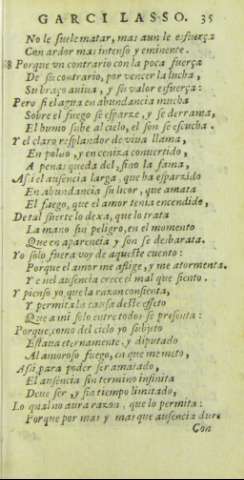 GARCI LASSO. 35
No le suele matar, mas aun le esfuerça
Con ardor mas intenso y eminente.
68 Porque vn contrario con la poca fuerça
De su contrario, por vencer la lucha,
Su braço auiua, y su valor esfuerça:
Pero si el agua en abundancia mucha
Sobre el fuego se esparze, y se derrama,
El humo sube al cielo, el son se escucha.
Y el claro resplandor de viua llama,
En poluo, y en ceniza conuertido,
A penas queda del, sino la fama,
Assi el ausencia larga, que ha esparzido
En abundancia su licor, que amata
El fuego, que el amor tenia encendido,
De tal suerte lo dexa, que lo trata
La mano sin peligro, en el momento
Que en aparencia y son se desbarata.
Yo solo fuera voy de aqueste cuento:
Porque el amor me aflige, y me atormenta.
Y en el ausencia crece el mal que siento.
Y pienso yo, que la razon consienta,
Y permita la causa deste effeto
Que a mi solo entre todos se presenta:
Porque, como del cielo yo subjeto
Estaua eternamente, y diputado
Al amoroso fuego, en que me meto,
Assi, para poder ser amatado,
El ausencia sin termino infinita
Deue ser, y sin tiempo limitado,
Lo qual no aura razon, que lo permita:
Porque por mas y mas que ausencia dure
Con